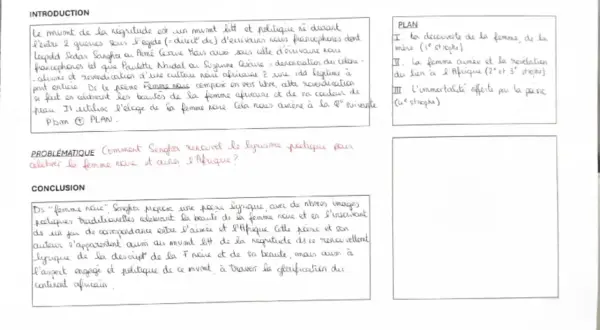 INTRODUCTION
Le mvmt de la négritude est un mvmt litt et politique né durant
l'entre 2 guerres sous l'égide (= direct° de) d'écrivains noirs francophones dont
Léopold Sédar Senghor ou Aimé Césaire Mais aussi sous celle d'écrivaines noires
francophones tel que Paulette Nardal ou Suzanne Césaire = dénonciation du colon-
-alisme et revendication d'une culture noire africaine
part entière. Ds le poème Femme noire composé en vers libres, cette revendication
se fait en célébrant les beautés de la femme africaine et de sa couleur de
peau. Il utilise l'éloge de la femme noire. Cela nous amène à la q° suivante
Pbm ⊕ PLAN.
PROBLÉMATIQUE Comment Senghor renouvelle le lyrisme poétique pour
célébrer la femme noire et aussi l'Afrique?
CONCLUSION
Ds "femme noire" Senghor propose une poésie lyrique, avec de nbreuses images
poétiques traditionnelles célébrant la beauté de la femme noire et en l'inscrivant
ds un jeu de correspondance entre l'aimée et l'Afrique. Cette poésie et son
auteur s'apparentent aussi au mvmt litt de la négritude ds ce renouvellement
lyrique de la descript° de la F noire et de sa beauté, mais aussi à
l'aspect engagé et politique de ce mvmt, à travers la glorification du
continent africain.
PLAN
I. la découverte de la femme, de la
mère (1° strophe)
II. la femme aimée et la révélation
du lien à l'Afrique (2° et 3° strophe)
III L'immortalité offerte par la poésie
(4° strophe)